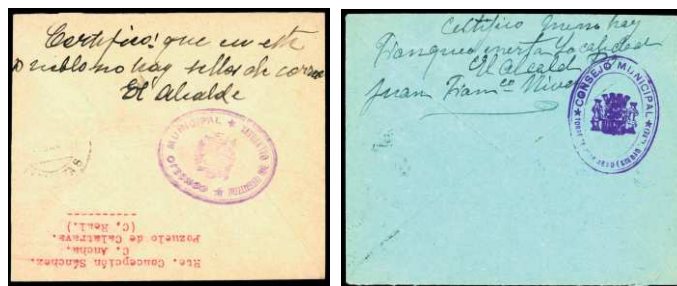 Certifico: que en este
Pueblo no hay sellos de correo
El Alcalde
CONSEJO MUNICIPAL
Rte. Concepción Sánchez.
C. Ancha.
Pozuelo de Calatrava.
(C. Real).
Certifico que no hay
Franqueo en esta Localidad
El Alcalde
Juan Fran.co
CONSEJO MUNICIPAL